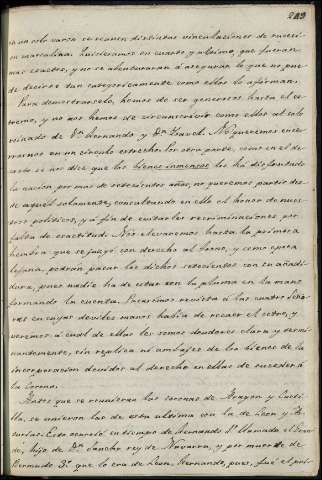 243
en un solo varon se reunen distintas vinculaciones de sucesi-
on masculina. Quisieramos en cuarto y ultimo, que fueran
mas exactos, y no se abenturaran á asegurar lo que no pue-
de decirse tan categoricamente como ellos lo afirman.
Para demostrarselo, hemos de ser generosos hasta el es-
tremo, y no nos hemos de circunscribir como ellos al solo
reinado de Dn. Fernando y Da. Isavel. No queremos ence-
rrarnos en un circulo estrecho. Por otra parte, como en el de-
creto se nos dice que los bienes inmensos los ha disfrutado
la nacion por mas de setecientos años, no queremos partir des-
de aquel solamente, consultando en ello el honor de nues-
tros politicos, y á fin de evitar les recriminaciones por
falta de exactitud. Nos elevaremos hasta la primera
hembra que se juzgó con derecho al trono, y como epoca
lejana, podran pasar los dichos setecientos con su añadi-
dura, pues nadie ha de estar con la pluma en la mano
formando la cuenta. Pasarémos revista á las cuatro seño-
ras en cuyas deviles manos habia de recaer el cetro, y
veremos á cual de ellas les somos deudores clara y termi-
nantemente, sin replica ni ambajes de los bienes de la
incorporacion devidos al derecho en ellas de suceder á
la Corona.
Antes que se reunieran las coronas de Aragon y Casti-
lla, se unieron las de esta ultima con la de Leon y As-
turias. Esto acaeció en tiempo de Fernando 1º llamado el Gran-
de, hijo de Dn. Sancho rey de Navarra, y por muerte de
Bermudo 3º que lo era de Leon. Fernando, pues, fué el pri-